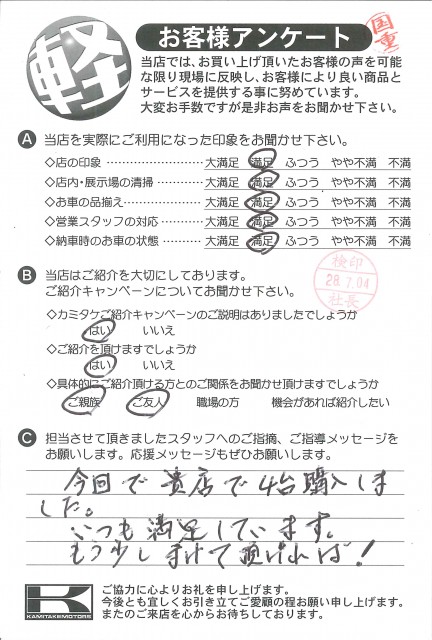 軽
お客様アンケート
国重
当店では、お買い上げ頂いたお客様の声を可能
な限り現場に反映し、お客様により良い商品と
サービスを提供する事に努めています。
大変お手数ですが是非お声をお聞かせ下さい。
A 当店を実際にご利用になった印象をお聞かせ下さい。
◇店の印象 大満足 満足 ふつう やや不満 不満
◇店内・展示場の清掃 大満足 満足 ふつう やや不満 不満
◇お車の品揃え 大満足 満足 ふつう やや不満 不満
◇営業スタッフの対応 大満足 満足 ふつう やや不満 不満
◇納車時のお車の状態 大満足 満足 ふつう やや不満 不満
B 当店はご紹介を大切にしております。
ご紹介キャンペーンについてお聞かせ下さい。
検印
28.7.04
社長
◇カミタケご紹介キャンペーンのご説明はありましたでしょうか
はい いいえ
◇ご紹介を頂けますでしょうか
はい いいえ
◇具体的にご紹介頂ける方とのご関係をお聞かせ頂けますでしょうか
ご親族 ご友人 職場の方 機会があれば紹介したい
C 担当させて頂きましたスタッフへのご指摘、ご指導メッセージを
お願いします。応援メッセージもぜひお願いします。
今回で貴店で4台購入しま
した。
いつも満足しています。
もう少しまけて頂ければ!
K
KAMITAKEMOTORS
ご協力に心よりお礼を申し上げます。
今後とも宜しくお引き立てご愛顧の程お願い申し上げます。
またのご来店を心からお待ちしております。